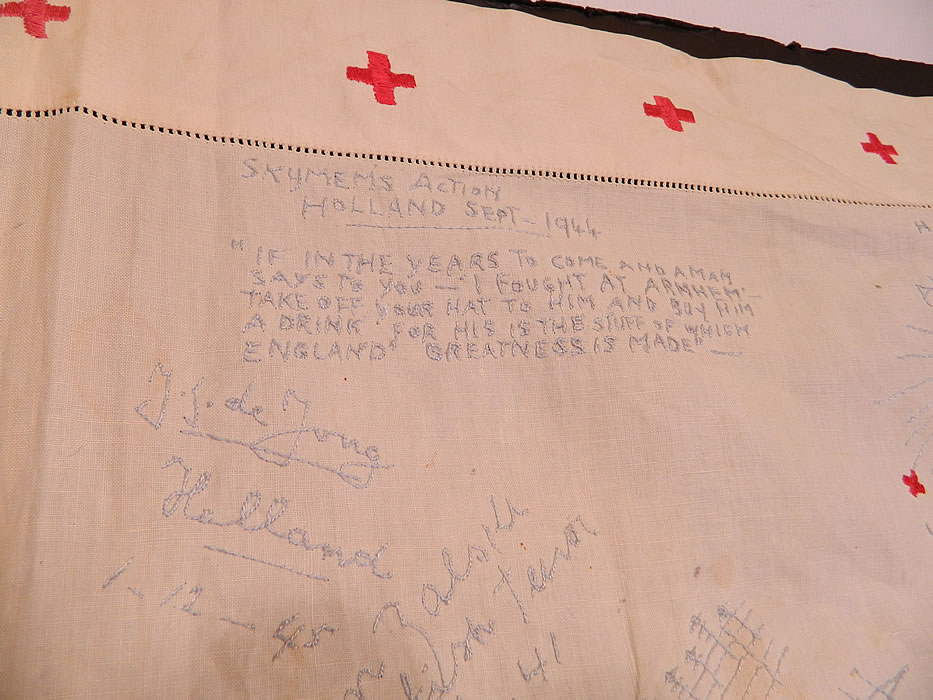 SKYMEN'S ACTION
HOLLAND SEPT - 1944
"IF IN THE YEARS TO COME AND A MAN
SAYS TO YOU — 'I FOUGHT AT ARNHEM' —
TAKE OFF YOUR HAT TO HIM AND BUY HIM
A DRINK FOR HIS IS THE STUFF OF WHICH
ENGLAND' GREATNESS IS MADE" —
J. J. de Jong
Holland
1 - 12 - 45
41